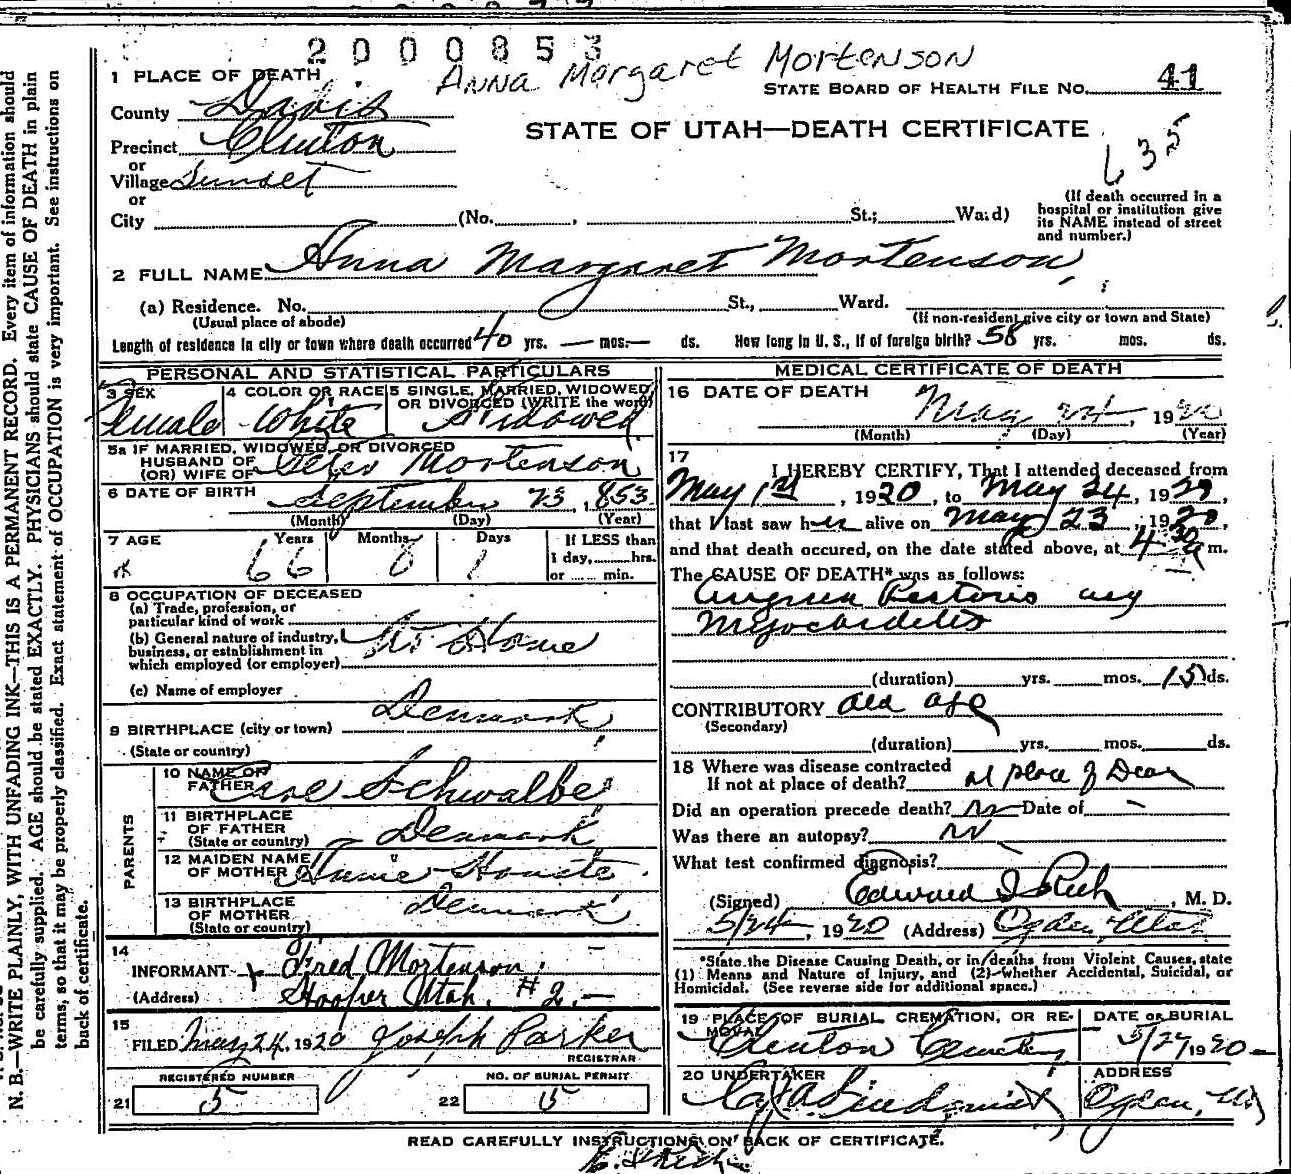 2000853
Anna Margaret Mortenson
1 PLACE OF DEATH
STATE BOARD OF HEALTH FILE NO. 41
County Davis
STATE OF UTAH—DEATH CERTIFICATE
635
Precinct Clinton
or
Village Sunset
or
City (No. , St.; Ward)
(If death occurred in a
hospital or institution give
its NAME instead of street
and number.)
2 FULL NAME Anna Margaret Mortenson
(a) Residence. No. St., Ward.
(Usual place of abode)
(If non-resident give city or town and State)
Length of residence in city or town where death occurred 40 yrs. — mos. — ds. How long in U. S., if of foreign birth? 58 yrs. mos. ds.
PERSONAL AND STATISTICAL PARTICULARS
3 SEX
Female
4 COLOR OR RACE
White
5 SINGLE, MARRIED, WIDOWED
OR DIVORCED (WRITE the word)
Widowed
5a IF MARRIED, WIDOWED OR DIVORCED
HUSBAND OF
(OR) WIFE OF Peter Mortenson
6 DATE OF BIRTH September 23, 1853
(Month) (Day) (Year)
7 AGE Years Months Days
66 8 1
If LESS than
1 day, hrs.
or min.
8 OCCUPATION OF DECEASED
(a) Trade, profession, or
particular kind of work
(b) General nature of industry,
business, or establishment in
which employed (or employer)
At Home
(c) Name of employer
9 BIRTHPLACE (city or town) Denmark
(State or country)
PARENTS
10 NAME OF
FATHER Schwalbe
11 BIRTHPLACE
OF FATHER
(State or country) Denmark
12 MAIDEN NAME
OF MOTHER Annie
13 BIRTHPLACE
OF MOTHER
(State or country) Denmark
14
INFORMANT Fred Mortenson
(Address) Hooper Utah. #2
15
FILED May 24, 1920 Joseph Parker
REGISTRAR
REGISTERED NUMBER
21 5
NO. OF BURIAL PERMIT
22 5
MEDICAL CERTIFICATE OF DEATH
16 DATE OF DEATH May 24, 1920
(Month) (Day) (Year)
17
I HEREBY CERTIFY, That I attended deceased from
May 1st, 1920, to May 24, 1920,
that I last saw her alive on May 23, 1920,
and that death occured, on the date stated above, at 4 30 a m.
The CAUSE OF DEATH* was as follows:
Angina Pectoris
Myocarditis
(duration) yrs. mos. 15 ds.
CONTRIBUTORY old age
(Secondary)
(duration) yrs. mos. ds.
18 Where was disease contracted
If not at place of death? at place of Death
Did an operation precede death? no Date of —
Was there an autopsy? no
What test confirmed diagnosis?
(Signed) Edward I Rich, M. D.
5/24, 1920 (Address) Ogden, Utah
*State the Disease Causing Death, or in deaths from Violent Causes, state
(1) Means and Nature of Injury, and (2) whether Accidental, Suicidal, or
Homicidal. (See reverse side for additional space.)
19 PLACE OF BURIAL CREMATION, OR RE-
MOVAL
Clinton Cemetery
DATE OF BURIAL
5/27 1920
20 UNDERTAKER
ADDRESS
Ogden, Ut
READ CAREFULLY INSTRUCTIONS ON BACK OF CERTIFICATE.
N. B.—WRITE PLAINLY, WITH UNFADING INK—THIS IS A PERMANENT RECORD. Every item of information should
be carefully supplied. AGE should be stated EXACTLY. PHYSICIANS should state CAUSE OF DEATH in plain
terms, so that it may be properly classified. Exact statement of OCCUPATION is very important. See instructions on
back of certificate.